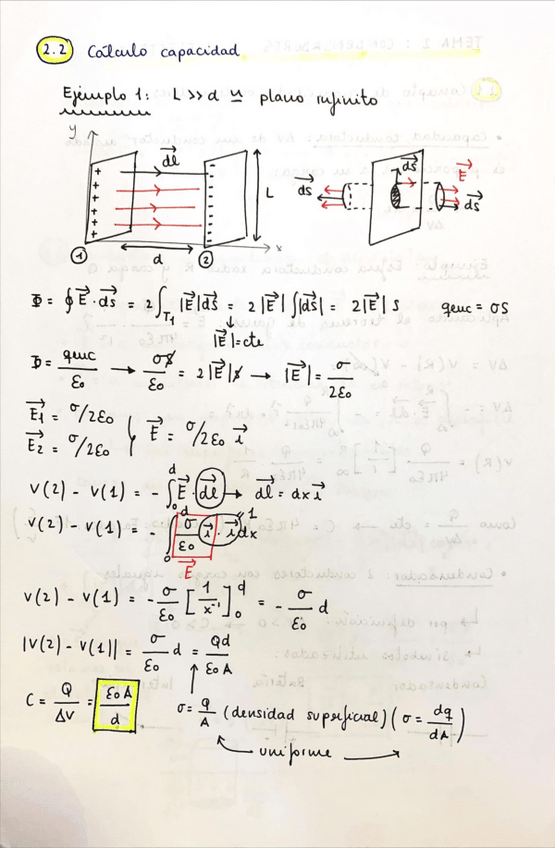 2.2 Cálculo capacidad
Ejemplo 1: L >> d ≃ plano infinito
y
dl⃗
+ + + + + +
- - - - - -
L
d
x
① ②
ds⃗
ds⃗
E⃗
ds⃗
Φ = ∮ E⃗ · ds⃗ = 2 ∫_T1 |E⃗| ds⃗ = 2 |E⃗| ∫ |ds⃗| = 2 |E⃗| S    qenc = σS
↓
|E⃗| = cte
Φ = qenc/ε0 → σS/ε0 = 2 |E⃗| S → |E⃗| = σ/2ε0
E1⃗ = σ/2ε0
E2⃗ = σ/2ε0 } E⃗ = σ/2ε0 i⃗
V(2) - V(1) = - ∫_0^d E⃗ · dl⃗ → dl⃗ = dx i⃗
V(2) - V(1) = - ∫_0^d σ/ε0 i⃗ · i⃗ dx
1
E⃗
V(2) - V(1) = - σ/ε0 [1/x⁻¹]_0^d = - σ/ε0 d
|V(2) - V(1)| = σ/ε0 d = Qd/ε0A
C = Q/ΔV = ε0A/d
σ = q/A (densidad superficial) (σ = dq/dA)
uniforme